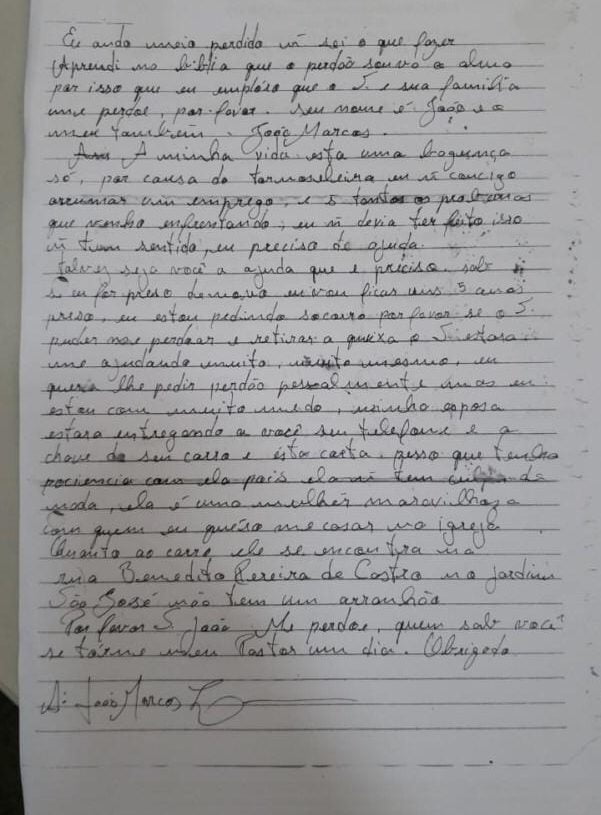 Eu ando meio perdido ñ sei o que fazer
Aprendi na biblia que o perdão salva a alma
por isso que eu emploro que o S. e sua familia
me perdoe, por favor. seu nome é João e o
meu também. João Marcos.
A minha vida esta uma bagunça
só, por causa da tornoseleira eu ñ concigo
arrumar um emprego, e s tantos os problemas
que venho enfrentando, eu ñ devia ter feito isso
ñ tem sentido, eu preciso de ajuda.
talvez seja você a ajuda que e preciso. sab
se eu for preso denovo eu vou ficar uns 5 anos
preso, eu estou pedindo socorro por favor se o S.
puder me perdoar e retirar a queixa o S. estara
me ajudando muito, muito mesmo, eu
queria lhe pedir perdão pessoalmente mas eu
estou com muito medo, minha esposa
estara entregando a você seu telefone e a
chave do seu carro e esta carta. pesso que tenha
paciencia com ela pois ela ñ tem culpa de
nada, ela é uma mulher maravilhosa
com quem eu queiro me casar na igreja
Quanto ao carro, ele se encontra na
rua Benedito Pereira de Castro no jardim
São José não tem um arranhão
Por favor S. João Me perdoe, quem sab você
se torne meu Pastor um dia. Obrigado.
A: João Marcos